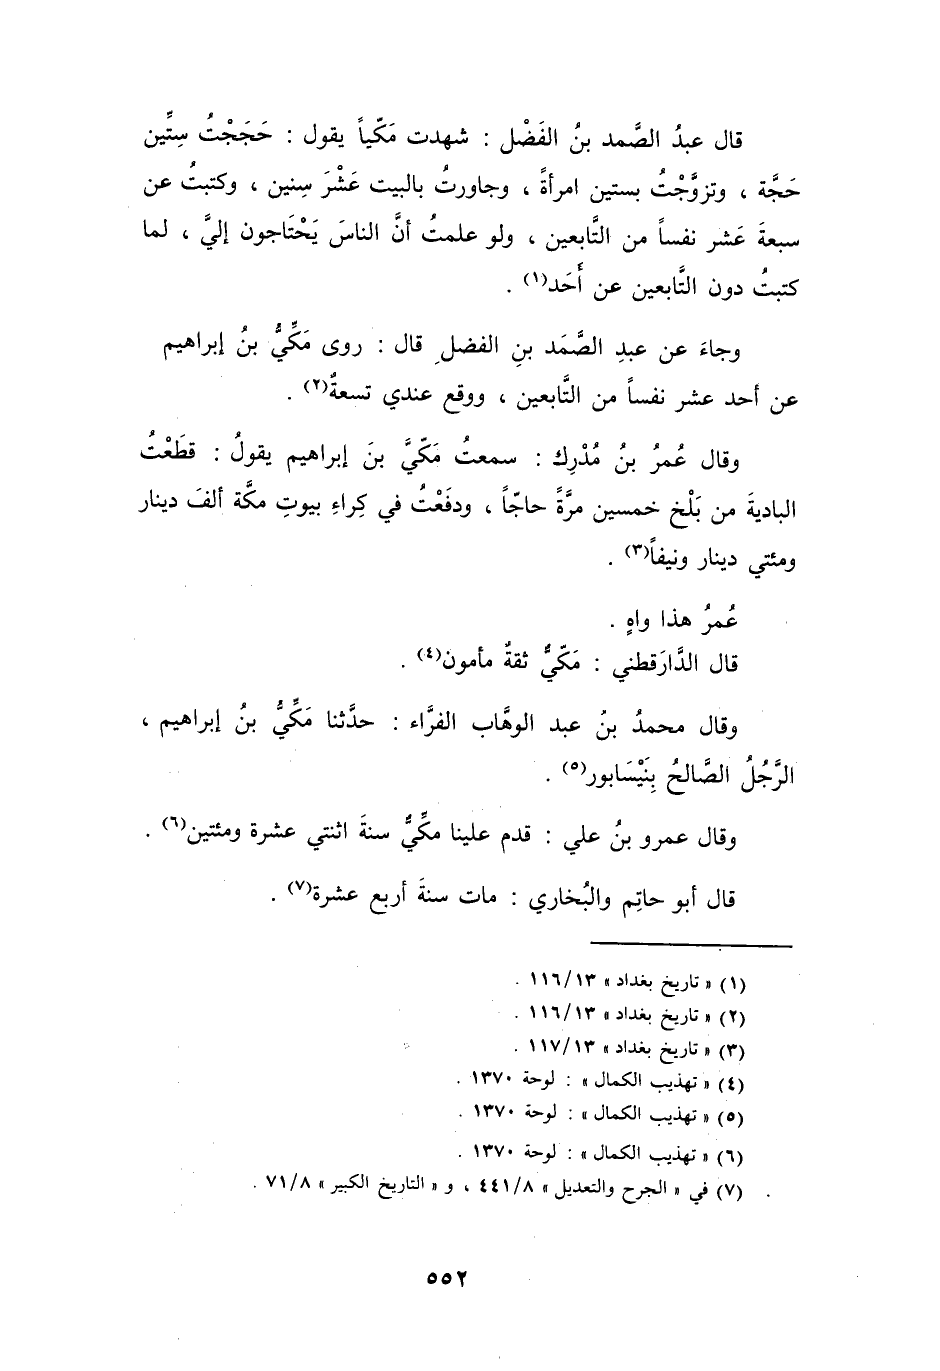 قال عبدُ الصَّمد بنُ الفَضْل : شهدت مَكّياً يقول : حَجَجْتُ سِتِّين
حَجَّة ، وتزوَّجْتُ بستين امرأةً ، وجاورتُ بالبيت عَشْرَ سِنين ، وكتبتُ عن
سبعةَ عَشر نفساً من التَّابعين ، ولو علمتُ أنَّ الناسَ يَحْتَاجون إليَّ ، لما
كتبتُ دون التَّابعين عن أَحَد(١) .
وجاءَ عن عبدِ الصَّمَد بنِ الفضلِ قال : روى مَكِّيُّ بنُ إبراهيم
عن أحد عشر نفساً من التَّابعين ، ووقع عندي تسعةٌ(٢) .
وقال عُمرُ بنُ مُدْرِك : سمعتُ مَكّيَّ بنَ إبراهيم يقولُ : قطَعْتُ
الباديةَ من بَلْخ خمسين مرَّةً حاجّاً ، ودفَعْتُ في كِراءِ بيوتِ مكَّة ألفَ دينار
ومئتي دينار ونيفاً(٣) .
عُمرُ هذا واهٍ .
قال الدَّارَقطني : مَكّيٌّ ثقةٌ مأمون(٤) .
وقال محمدُ بنُ عبد الوهَّاب الفرَّاء : حدَّثنا مَكِّيُّ بنُ إبراهيم ،
الرَّجُلُ الصَّالحُ بِنَيْسَابور(٥) .
وقال عمرو بنُ علي : قدم علينا مكِّيٌّ سنةَ اثنتي عشرة ومئتين(٦) .
قال أبو حاتِم والبُخاري : مات سنةَ أربع عشرة(٧) .
(١) « تاريخ بغداد » ١١٦/١٣ .
(٢) « تاريخ بغداد » ١١٦/١٣ .
(٣) « تاريخ بغداد » ١١٧/١٣ .
(٤) « تهذيب الكمال » : لوحة ١٣٧٠ .
(٥) « تهذيب الكمال » : لوحة ١٣٧٠ .
(٦) « تهذيب الكمال » : لوحة ١٣٧٠ .
(٧) في « الجرح والتعديل » ٤٤١/٨ ، و « التاريخ الكبير » ٧١/٨ .
٥٥٢